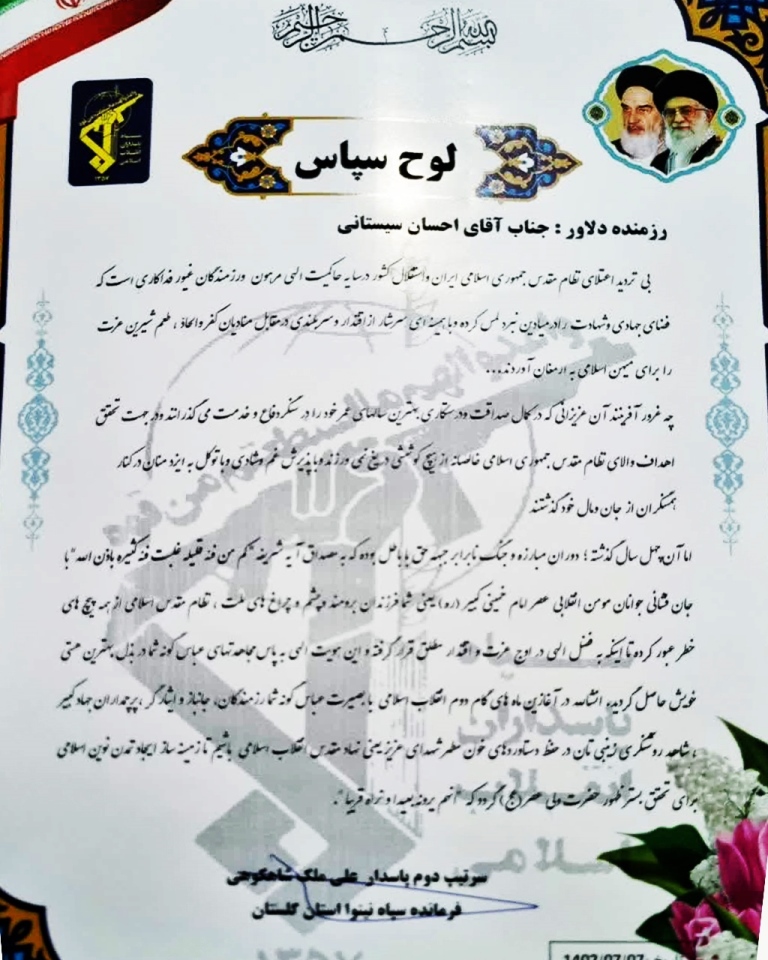 بسم الله الرحمن الرحیم
سپاه
پاسداران
انقلاب
اسلامی
۱۳۵۷
لوح سپاس
رزمنده دلاور : جناب آقای احسان سیستانی
بی تردید اعتلای نظام مقدس جمهوری اسلامی ایران واستقلال کشور درسایه حاکمیت الهی مرهون ورزمندگان غیور فداکاری است که
فضای جهادی وشهادت را درمیادین نبرد لمس کرده وباسینه ای سرشار از اقتدار وسربلندی درمقابل منادیان کفر والحاد ، طعم شیرین عزت
را برای میهن اسلامی به ارمغان آوردند...
چه غرور آفرینند آن عزیزانی که در کمال صداقت ودرستکاری بهترین سالهای عمر خود را در سنگر دفاع و خدمت می گذرانند ودر جهت تحقق
اهداف والای نظام مقدس جمهوری اسلامی خالصانه از هیچ کوششی دریغ نمی ورزند وبا پذیرش غم وشادی وبا توکل به ایزد منان در کنار
همسنگران از جان ومال خود گذشتند
اما آن چهل سال گذشته ؛ دوران مبارزه و جنگ نابرابر جبهه حق با باطل بوده که به مصداق آیه شریفه "کم من فئه قلیله غلبت فئه کثیره باذن الله" با
جان فشانی جوانان مومن انقلابی عصر امام خمینی کبیر (ره) یعنی شما فرزندان برومند وچشم و چراغ های ملت ، نظام مقدس اسلامی از همه پیچ های
خطر عبور کرده تا اینکه به فضل الهی در اوج عزت و اقتدار مطلق قرار گرفته و این هویت الهی به پاس مجاهدتهای عباس گونه شما در بذل بهترین هستی
خویش حاصل گردیده انشالله در آغازین ماه های گام دوم انقلاب اسلامی با بصیرت عباس گونه شما رزمندگان، جانباز و ایثار گر ، پرچمداران جهاد کبیر
، شاهد روشنگری زینبی تان در حفظ دستاوردهای خون مطهر شهدای عزیز یعنی نهاد مقدس انقلاب اسلامی باشیم تا زمینه ساز ایجاد تمدن نوین اسلامی
برای تحقق بستر ظهور حضرت ولی عصر(عج) گردد که "انهم یرونه بعیدا و نراه قریبا ".
سرتیپ دوم پاسدار علی ملک شاهکوهی
فرمانده سپاه نینوا استان گلستان
1402/07/07